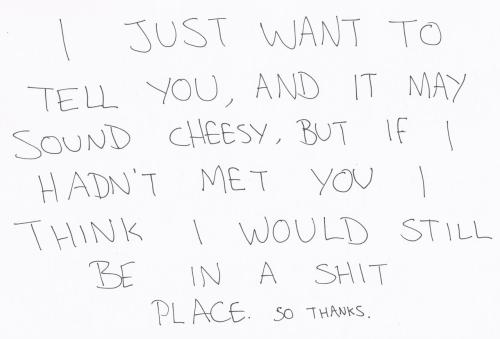 I JUST WANT TO
TELL YOU, AND IT MAY
SOUND CHEESY, BUT IF I
HADN'T MET YOU I
THINK I WOULD STILL
BE IN A SHIT
PLACE. SO THANKS.